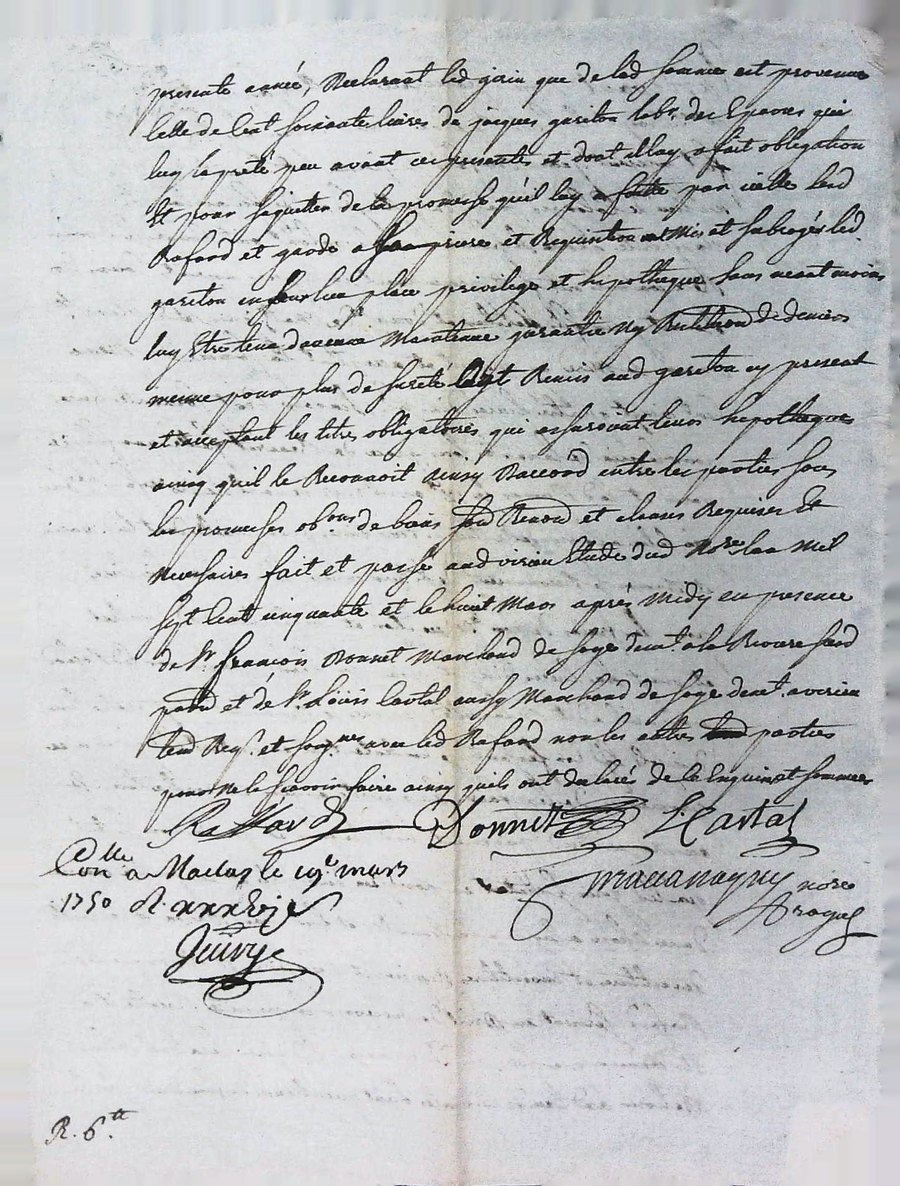 presente année, Declarant led garin que de lad somme est provenue
celle de Cent soixante livres de jacques gariton labr. des Eparres qui
luy a preté peu avant ces presentes et dont il luy a fait obligation
Et pour saquitter de la promesse qu'il luy a faite par icelle led
Rafard et garde a sa priere et Requisition mis et subrogés led
gariton en leur lieu place privilege et hipotheque sans neantmoins
luy Etre tenu daucune Maintenue garantie ny Restitution de deniers
meme pour plus de sureté Remis aud gariton cy present
et acceptant les titres obligatoires qui assuroient leurs hipotheques
ainsy quil le Reconnoit ainsy Daccord entre les parties sous
les promesses obons de biens Renond et clauses Requises Et
Necessaires fait et passé aud virieu Etude dud Nore lan Mil
sept Cent cinquante et le huit Mars après Midy en presence
de Sr. francois Donnet Marchand de soye demt. a la
et de Sr. Loüis Cartal aussy Marchand de soye demt. a virieu
Req. et soigner avec led Rafard non les autres parties
pour ne le scavoir faire ainsy quils ont declaré de ce Enquis et sommes
Raffard Donnet L: Cartal
Conlle a le 19e. mars
1750 R.
nore
Royal
R. 6.tt